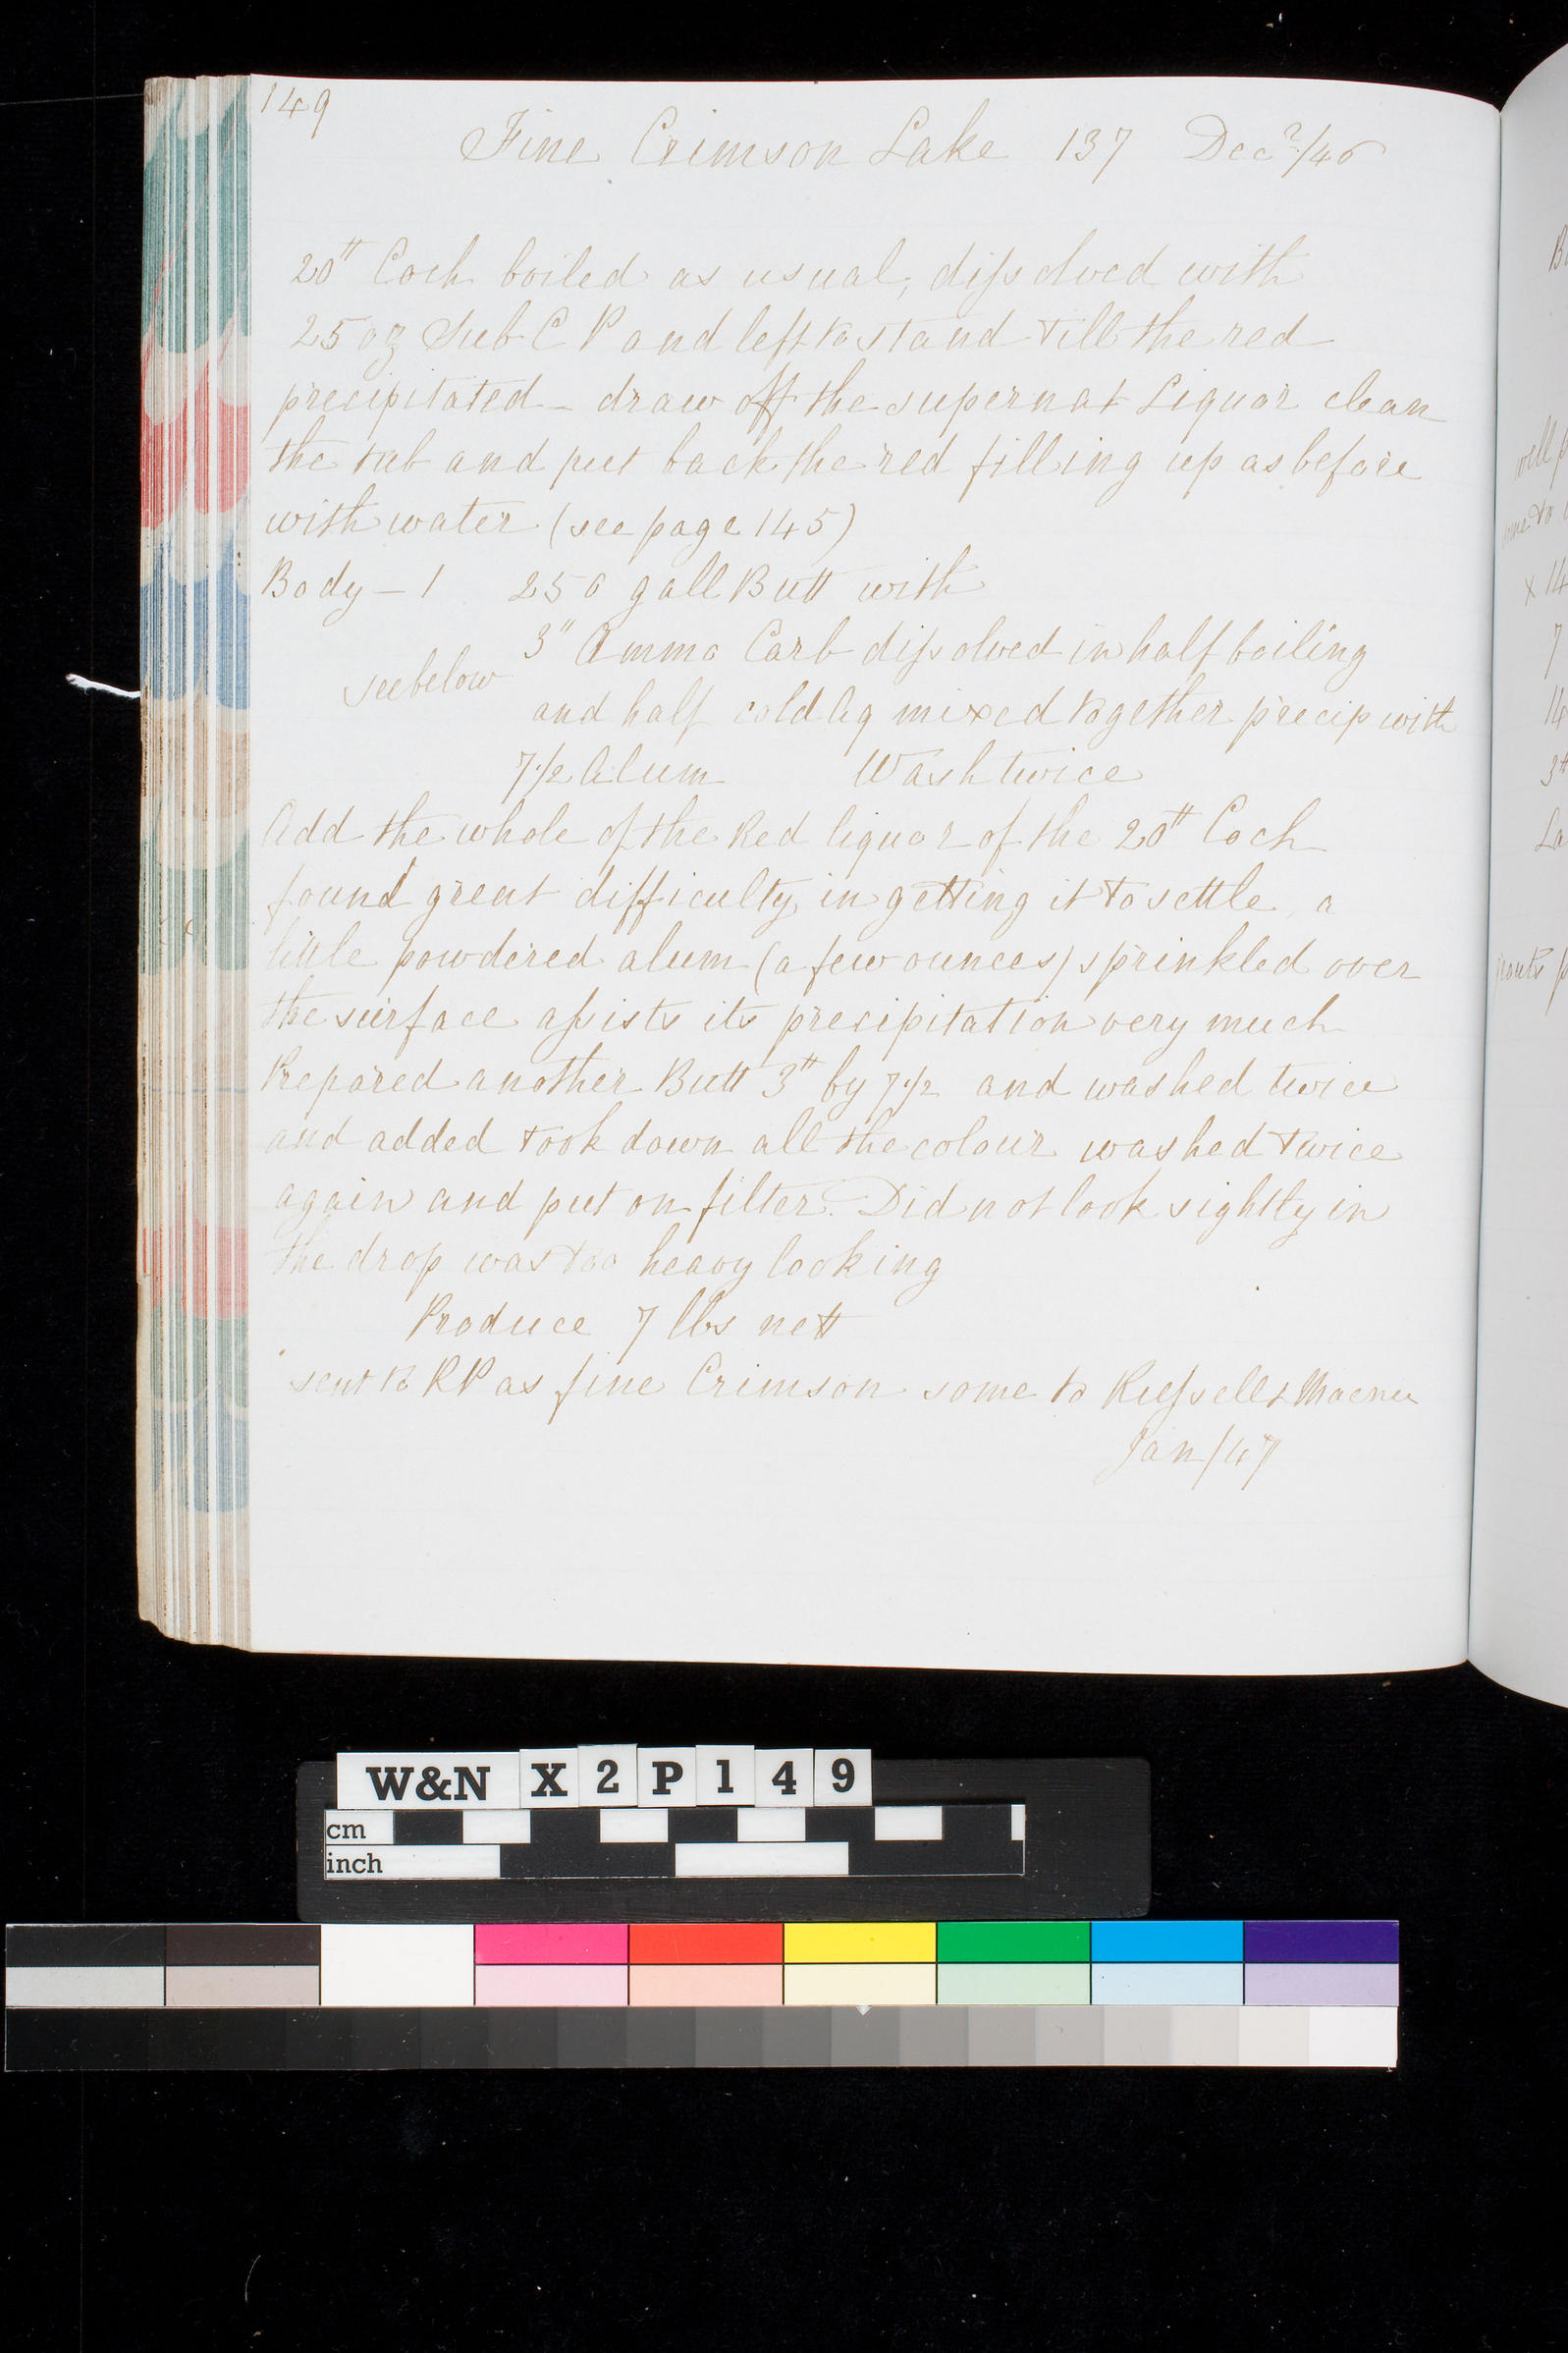 149
Fine Crimson Lake 137 Decr/46
20tt Coch boiled as usual, dissolved with
25 oz Sub C P and left to stand till the red
precipitated - draw off the supernat Liquor clean
the tub and put back the red filling up as before
with water (see page 145)
Body - 1 250 gall Butt with
3" Ammo Carb dissolved in half boiling
see below
and half cold Aq mixed together precip with
7 1/2 Alum Wash twice
Add the whole of the Red liquor of the 20tt Coch
found great difficulty in getting it to settle, a
little powdered alum (a few ounces) sprinkled over
the surface assists its precipitation very much
Prepared another Butt 3tt by 7 1/2 and washed twice
and added took down all the colour washed twice
again and put on filter. Did not look sightly in
the drop was too heavy looking
Produce 7 lbs nett
sent to RP as fine Crimson some to Russell &
Jan/47
well
x 14
7
14
3tt
La
W&N X2P149
cm
inch